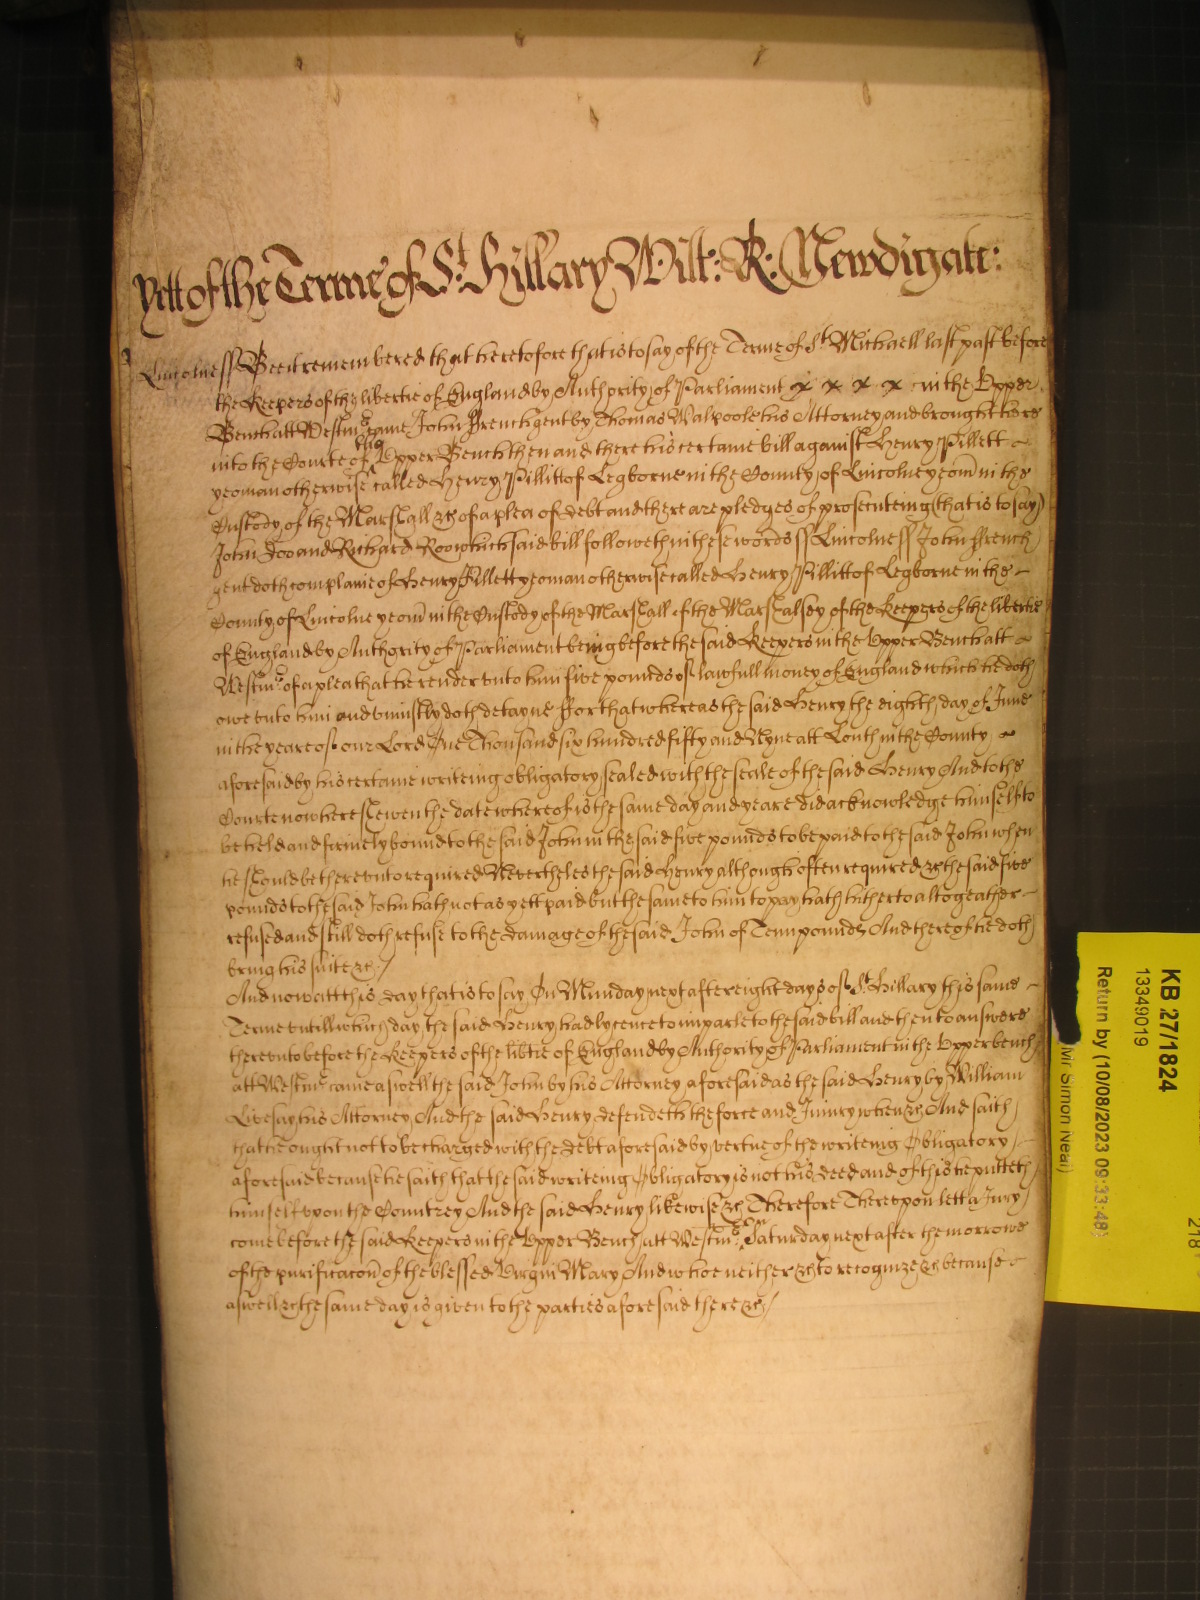 Yett of the Terme of St: Hillary Witt: R: Newdigate:
Lincolne ss Bee it remembered that heretofore that is to say of the Terme of St Michaell last past before
the Keepers of the libertie of England by Authority of Parliament x x x x in the Upper
Bench att Westmr came John French gent by Thomas Walpoole his Attorney and brought here
into the Courte of the Upper Bench then and there his certaine bill against Henry Pillett
yeoman otherwise called Henry Pillitt of Legborne in the County of Lincolne yeom in the
Custody of the Marshall &c of a plea of debt and there are pledges of prosecuteing (that is to say)
John Doo and Richard Roo which said bill followeth in these words ss Lincolne ss John French
gent doth complaine of Henry Pillett yeoman otherwise called Henry Pillitt of Legborne in the
County of Lincolne yeom in the Custody of the Marshall of the Marshalsey of the Keepers of the libertie
of England by Authority of Parliament being before the said Keepers in the Upper Bench att
Westmr of a plea that he render unto him five pounds of lawfull money of England which he doth
owe unto him and uniustly doth detayne For that whereas the said Henry the eighth day of June
in the yeare of our Lord One Thousand six hundred fifty and Nyne att Louth in the County
aforesaid by his certaine writeing obligatory sealed with the seale of the said Henry And to the
Courte now here shewen the date whereof is the same day and yeare did acknowledge himself to
be held and firmely bound to the said John in the said five pounds to be paid to the said John when
he should be thereunto required Neverthelesse the said Henry although often required &c the said five
pounds to the said John hath not as yett paid but the same to him to pay hath hitherto altogeather
refused and still doth refuse to the damage of the said John of Tenn pounds And thereof he doth
bring his suite &c
And now att this day that is to say On Munday next after eight days of St Hillary this same
Terme untill which day the said Henry had lycence to imparle to the said bill and then to answere
thereunto before the Keepers of the libtie of England by Authority of Parliament in the Upper bench
att Westmr came aswell the said John by his Attorney aforesaid as the said Henry by William
Livesay his Attorney And the said Henry defendeth the force and Iniury when &c And saith
that he ought not to be charged with the debt aforesaid by vertue of the writeing Obligatory
aforesaid because he saith that the said writeing Obligatory is not his deed and of this he putteth
himself upon the Countrey And the said Henry likewise &c Therefore Thereupon lett a Jury
come before the said Keepers in the Upper Bench att Westmr on Saturday next after the morrowe
of the purificacon of the blessed Virgin Mary And who neither &c to recognize &c because
aswell &c the same day is given to the parties aforesaid there &c
KB 27/1824
13349019
Return by (10/08/2023 09:33:48)
Mr Simon Neal